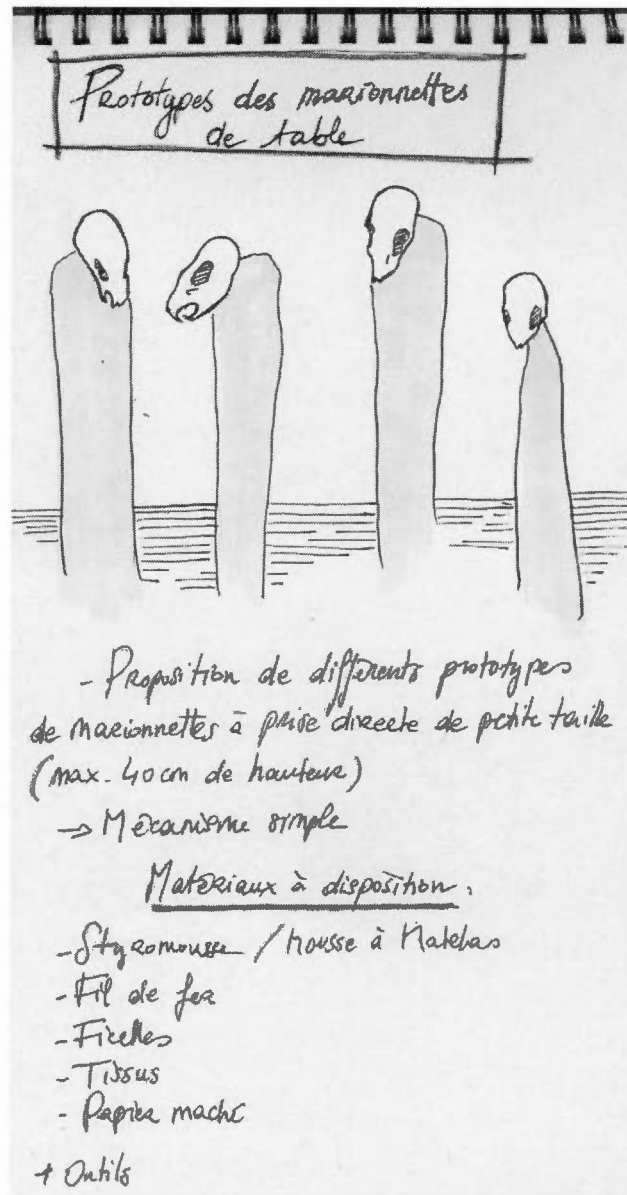 Prototypes des marionnettes
de table
- Proposition de différents prototypes
de marionnettes à prise directe de petite taille
(max. 40cm de hauteur)
→ Mécanisme simple
Matériaux à disposition.
- Styromousse / Mousse à Matelas
- Fil de fer
- Ficelles
- Tissus
- Papier maché
+ Outils